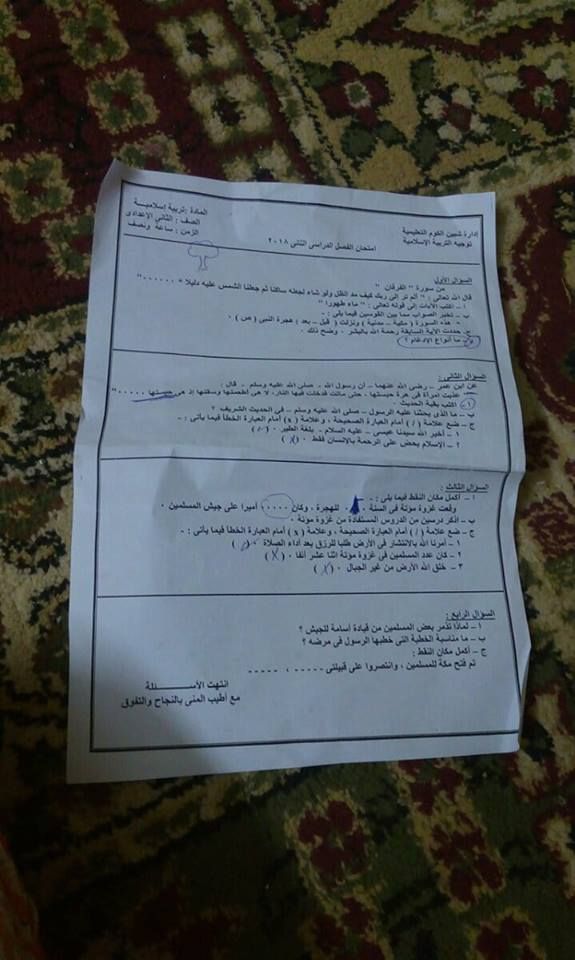 إدارة شبين الكوم التعليمية
المادة : تربية إسلامية
توجيه التربية الإسلامية
الصف : الثانى الإعدادى
الزمن : ساعة ونصف
امتحان الفصل الدراسى الثانى ٢٠١٨
السؤال الأول
من سورة " الفرقان "
قال الله تعالى : " ألم تر إلى ربك كيف مد الظل ولو شاء لجعله ساكنا ثم جعلنا الشمس عليه دليلا ٠٠٠٠٠٠ "
أ – اكتب الآيات إلى قوله تعالى : " ماء طهورا "
ب – تخير الصواب مما بين القوسين فيما يلى : -
هذه السورة ( مكية – مدنية ) ونزلت ( قبل – بعد ) هجرة النبى ( ص ) ٠
ج – حددت الآية السابقة رحمة الله بالبشر ٠ وضح ذلك ٠
د – ما أنواع الإدغام ؟
السؤال الثانى :
عن ابن عمر – رضى الله عنهما – أن رسول الله - صلى الله عليه وسلم - قال :
عذبت امرأة فى هرة حبستها ، حتى ماتت فدخلت فيها النار، لا هى أطعمتها وسقتها إذ هى حبستها ٠٠٠٠٠٠ "
أ – اكتب بقية الحديث ٠
ب – ما الذى يحثنا عليه الرسول – صلى الله عليه وسلم – فى الحديث الشريف ؟
ج – ضع علامة ( / ) أمام العبارة الصحيحة ، وعلامة ( x ) أمام العبارة الخطأ فيما يأتى :
١ – أخبر الله سيدنا عيسى – عليه السلام - بلغة الطير ٠ ( )
٢ – الإسلام يحض على الرحمة بالإنسان فقط ٠ ( x )
السؤال الثالث :
أ – أكمل مكان النقط فيما يلى : -
وقعت غزوة مؤتة فى السنة ٠ للهجرة ، وكان ٠٠٠٠٠ أميرا على جيش المسلمين ٠
ب – اذكر درسين من الدروس المستفادة من غزوة مؤتة ٠
ج – ضع علامة ( / ) أمام العبارة الصحيحة ، وعلامة ( x ) أمام العبارة الخطأ فيما يأتى : -
١ – أمرنا الله بالانتشار فى الأرض طلبا للرزق بعد أداء الصلاة ٠ ( )
٢ – كان عدد المسلمين فى غزوة مؤتة اثنا عشر ألفا ٠ ( x )
٣ – خلق الله الأرض من غير الجبال ٠ ( x )
السؤال الرابع :
أ – لماذا تذمر بعض المسلمين من قيادة أسامة للجيش ؟
ب – ما مناسبة الخطبة التى خطبها الرسول فى مرضه ؟
ج – أكمل مكان النقط :
تم فتح مكة للمسلمين ، وانتصروا على قبيلتى ----- ، -----
انتهت الأسـئلة
مع أطيب المنى بالنجاح والتفوق